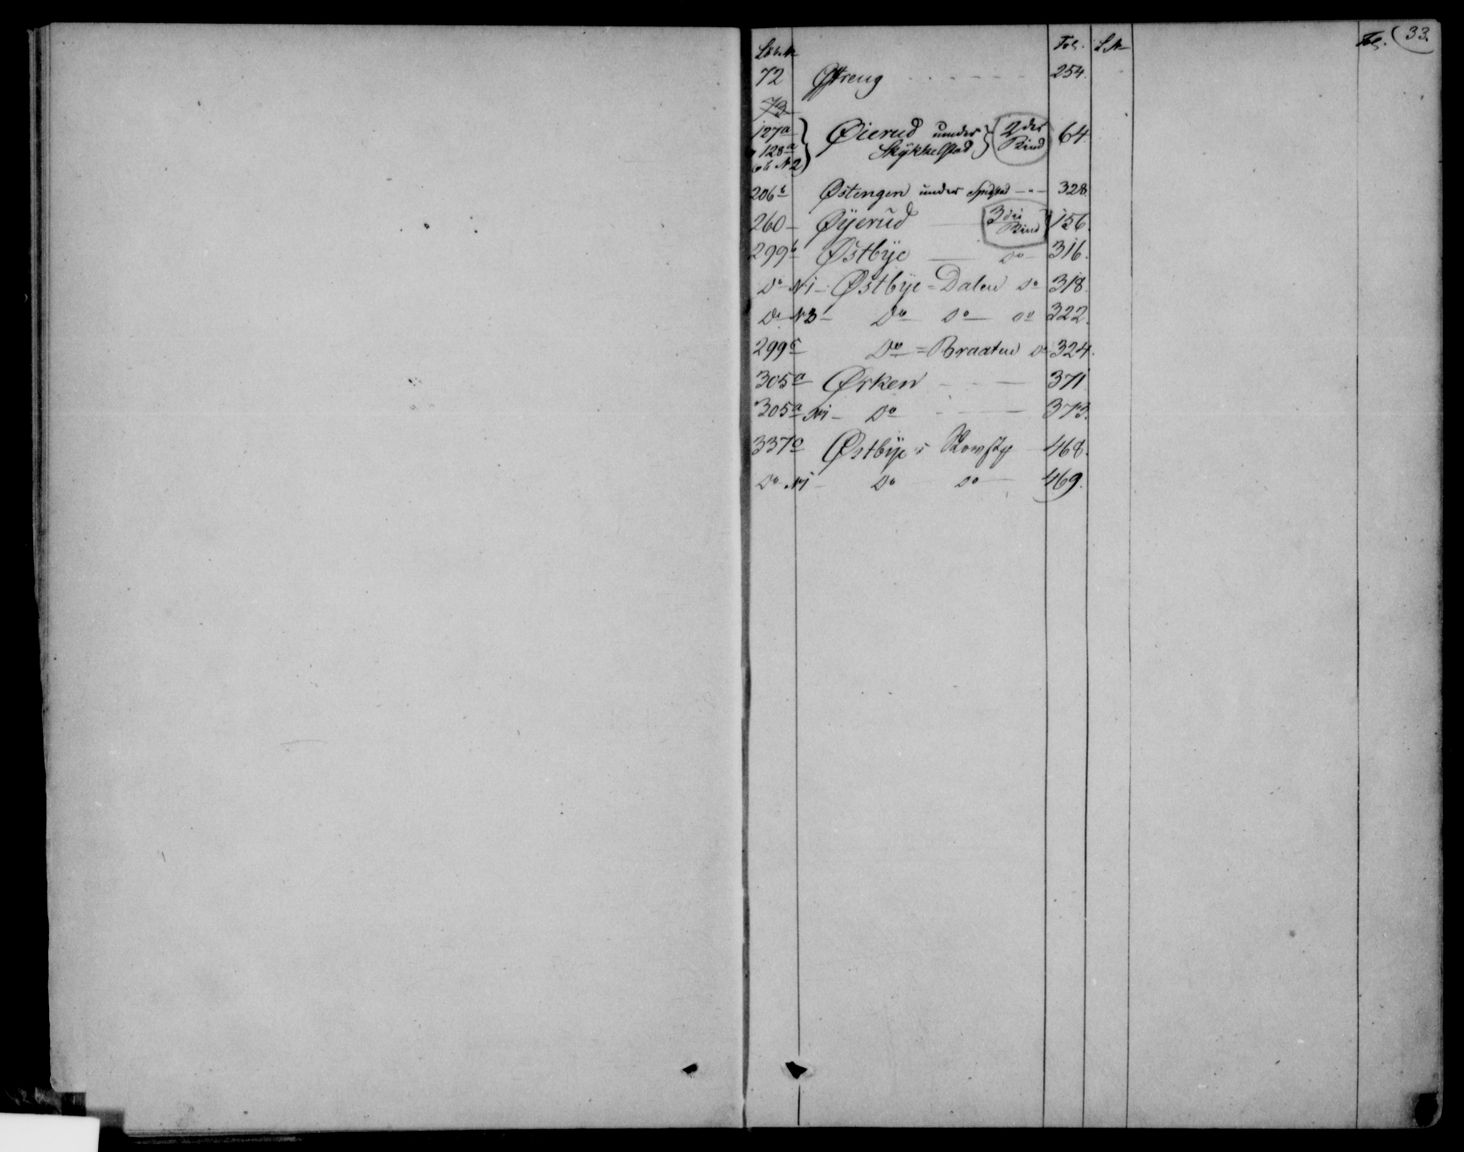 Løb. № Fol. L. № Fol. 33.
72 Østeng 254.
73
127a Øierud under 2den Bind 64
128a Skykkelstad
N 2
206 Østengen under 328
260 Øyerud 3die Bind 156.
299b Østbye Do 316.
Do N 1 Østbye = Dalen Do 318
Do N 3 Do Do Do 322.
299c Do = Braaten Do 324.
305a Ørken 371
305a N 1 Do 373.
337a Østbye 468.
Do N 1 Do Do 469.